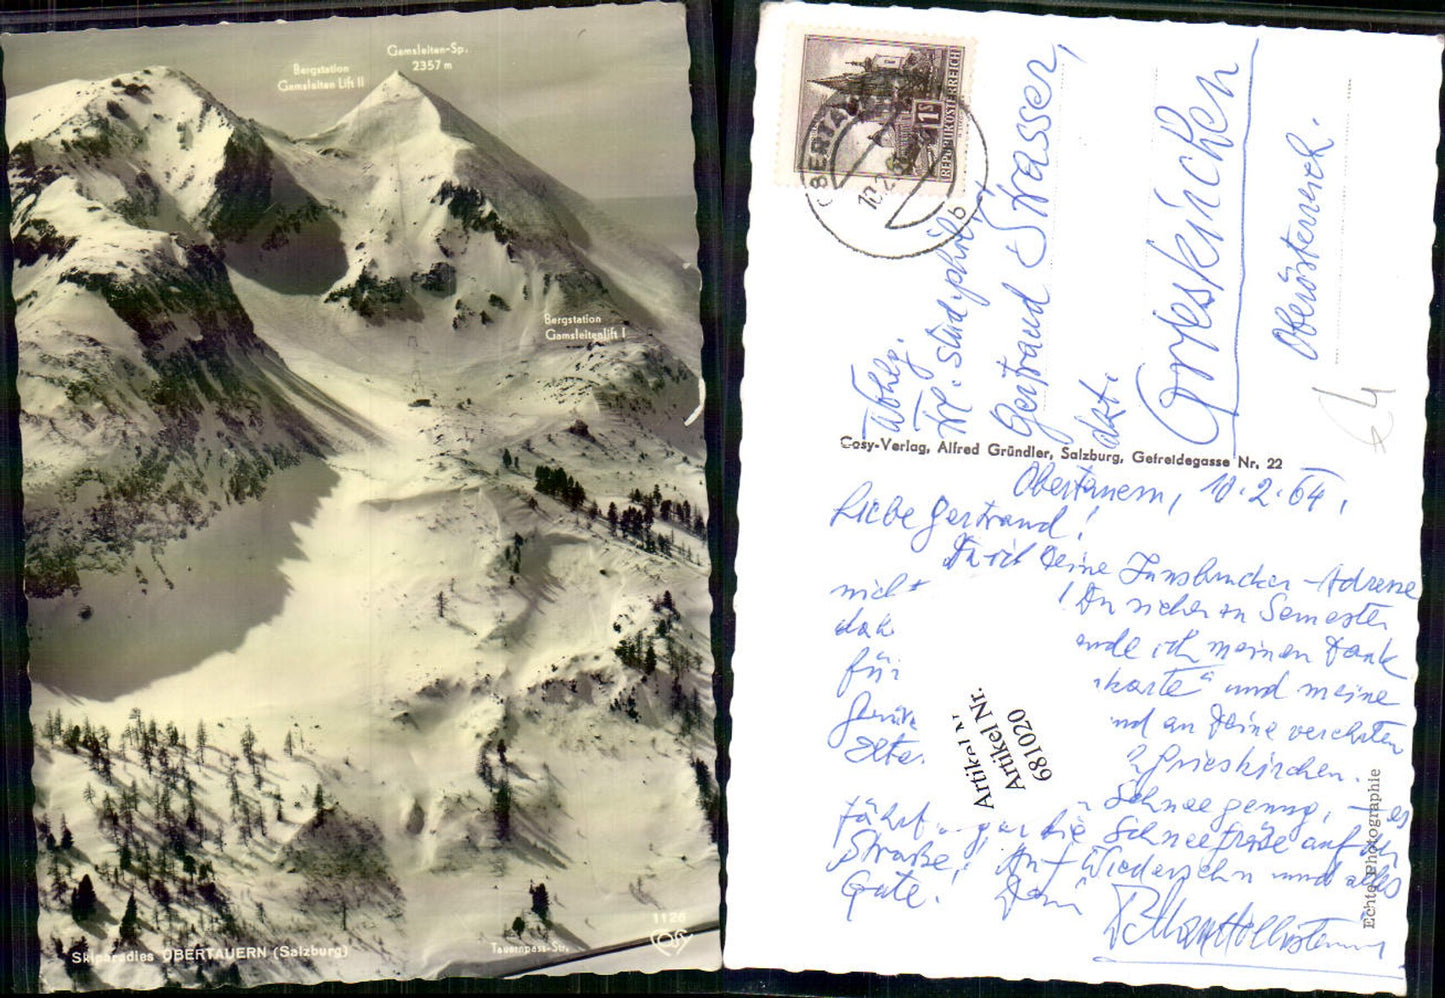 Gamsleiten-Sp.
2357 m
Bergstation
Gamsleiten Lift II
Bergstation
Gamsleitenlift I
1126
Skiparadies OBERTAUERN (Salzburg)
Tauernpass-Str.
REPUBLIK ÖSTERREICH
1 S
OBERTAU
10.2.6
b
stud. phil.
Gertraud Strasser,
Grieskirchen
Oberösterreich.
Cosy-Verlag, Alfred Gründler, Salzburg, Getreidegasse Nr. 22
Obertauern, 10.2.64.
Liebe Gertraud!
Da ich Deine Innsbrucker-Adresse
nicht
! Du sicher zu Semester
ende ich meinen Dank
für
karte" und meine
nd an Deine verehrten
Elte
Grieskirchen.
Schnee genug, – es
fährt gar die Schneefräse auf der
Straße! Auf Wiedersehn und alles
Gute! Dein
Artikel Nr.
Artikel Nr.
681020
Echte Photographie